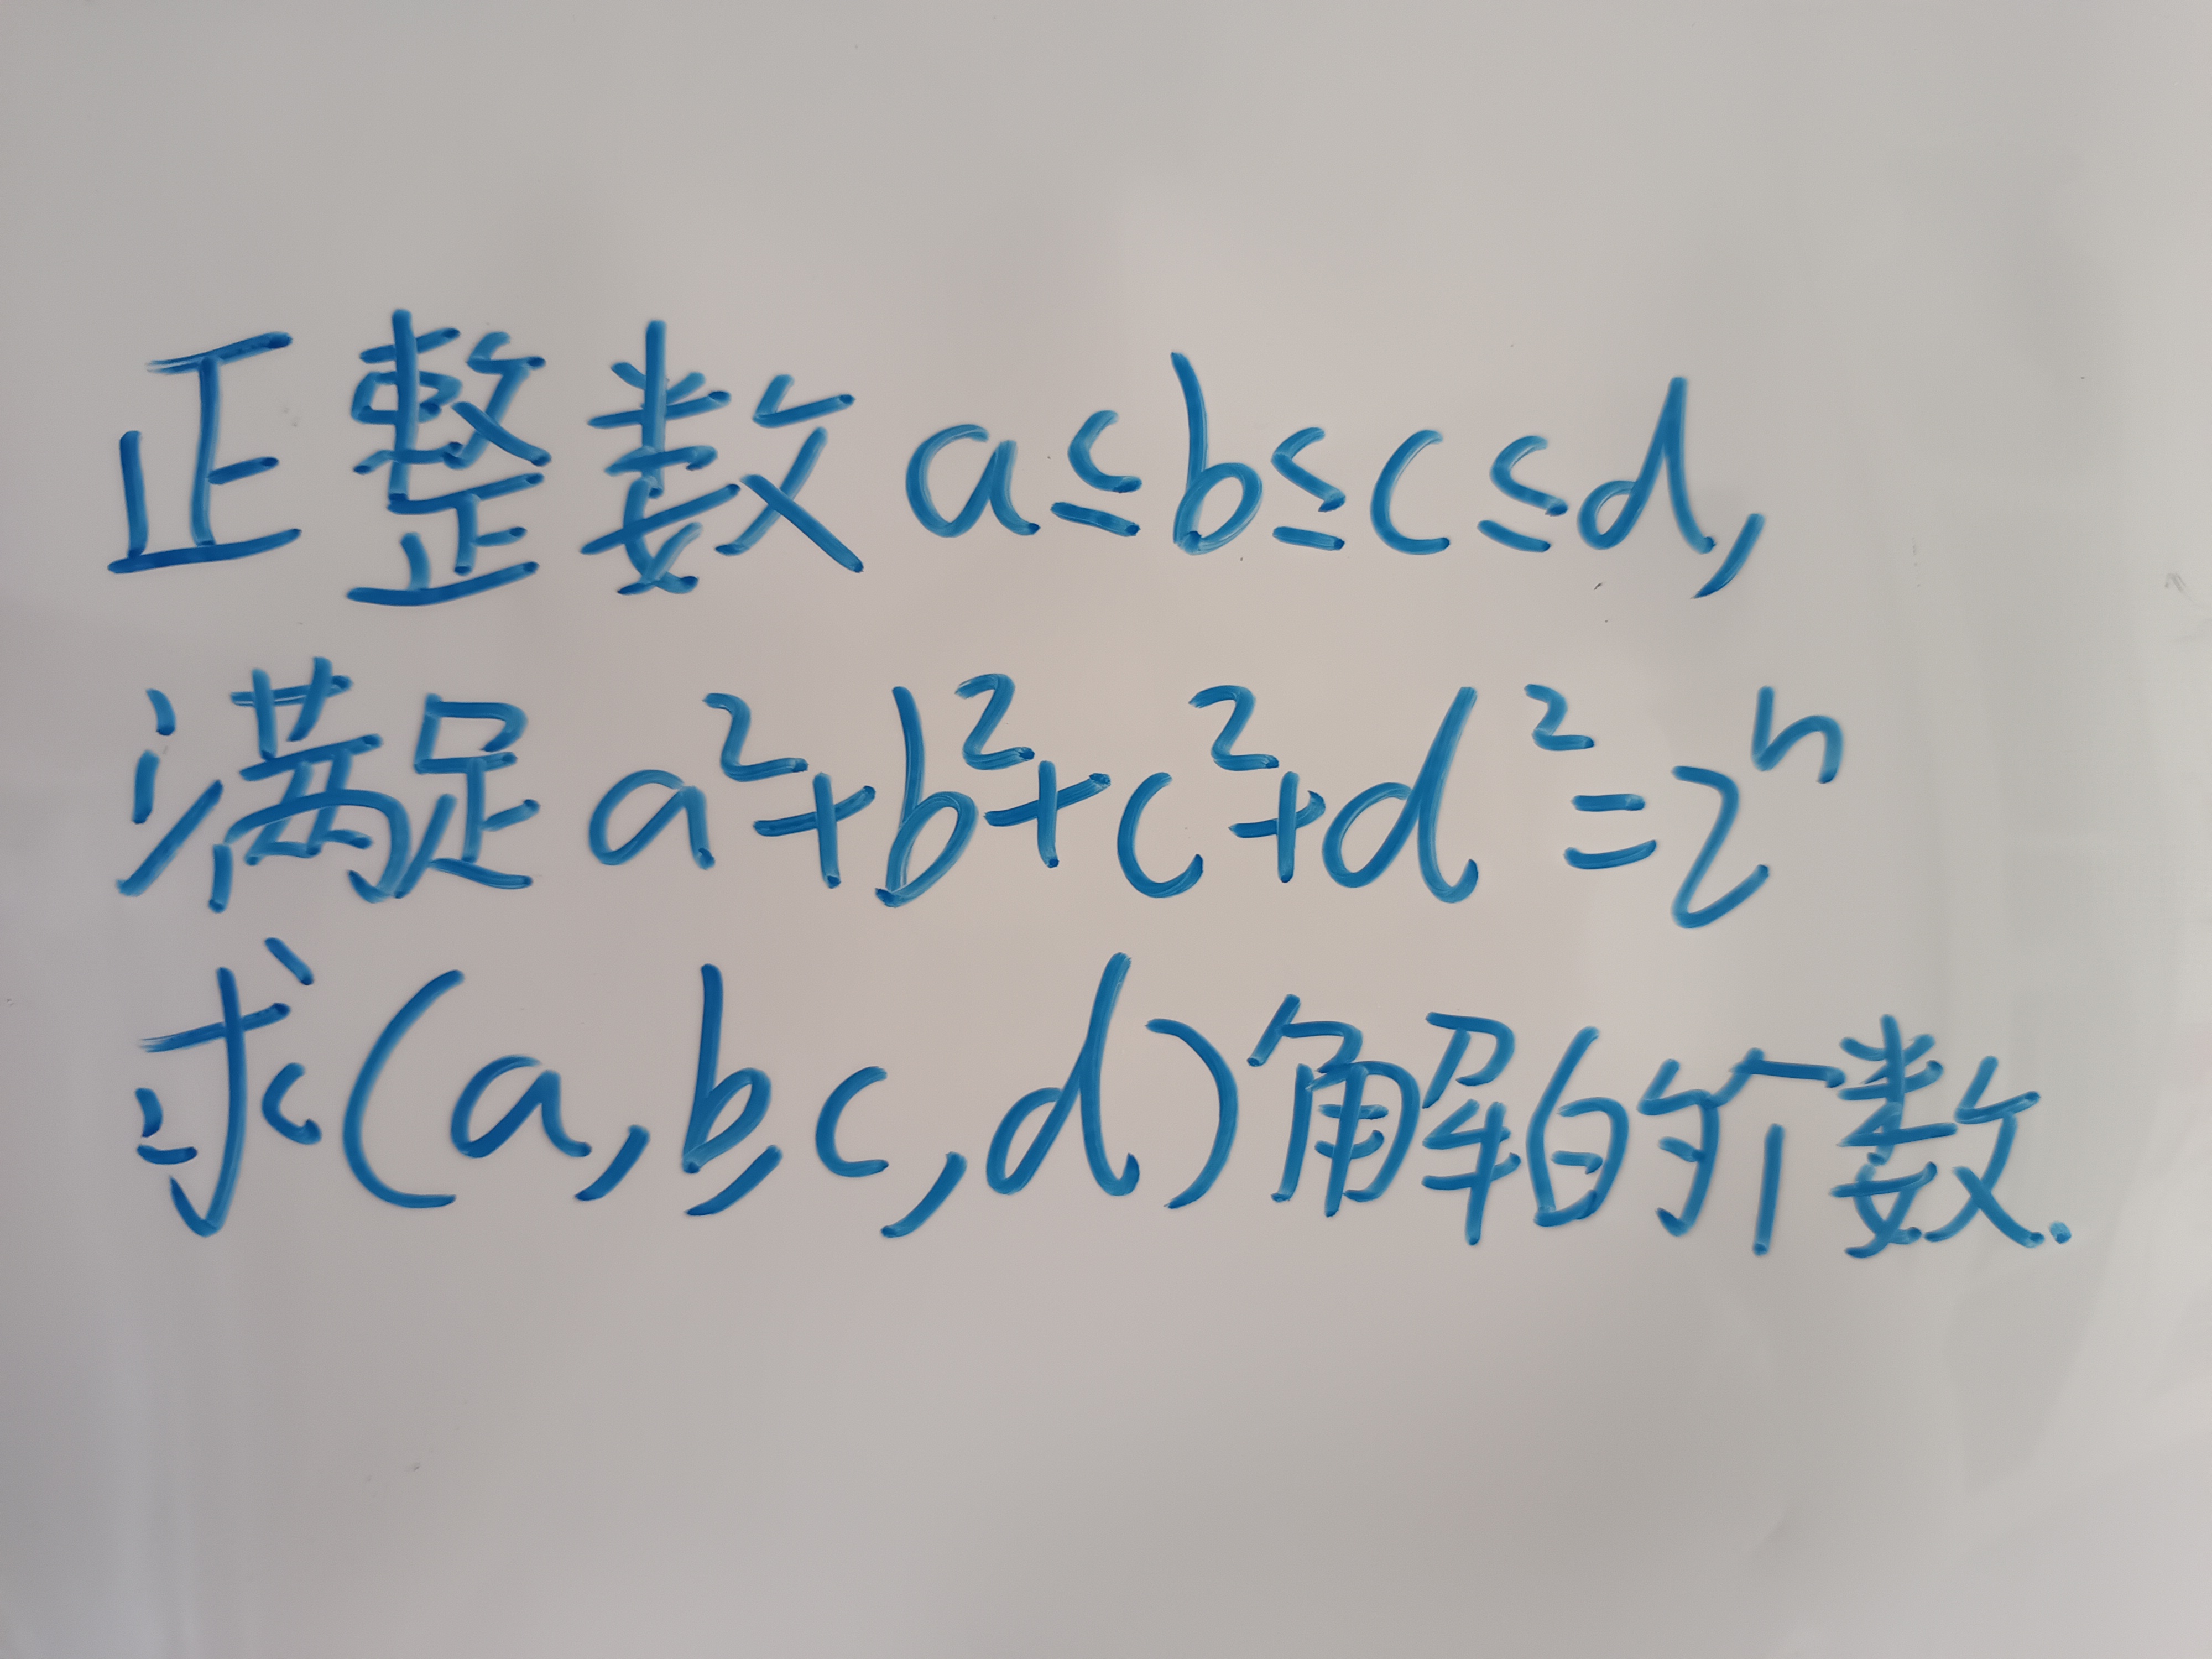 正整数 a≤b≤c≤d,
满足 a²+b²+c²+d²=2ⁿ
求(a,b,c,d)解的个数.